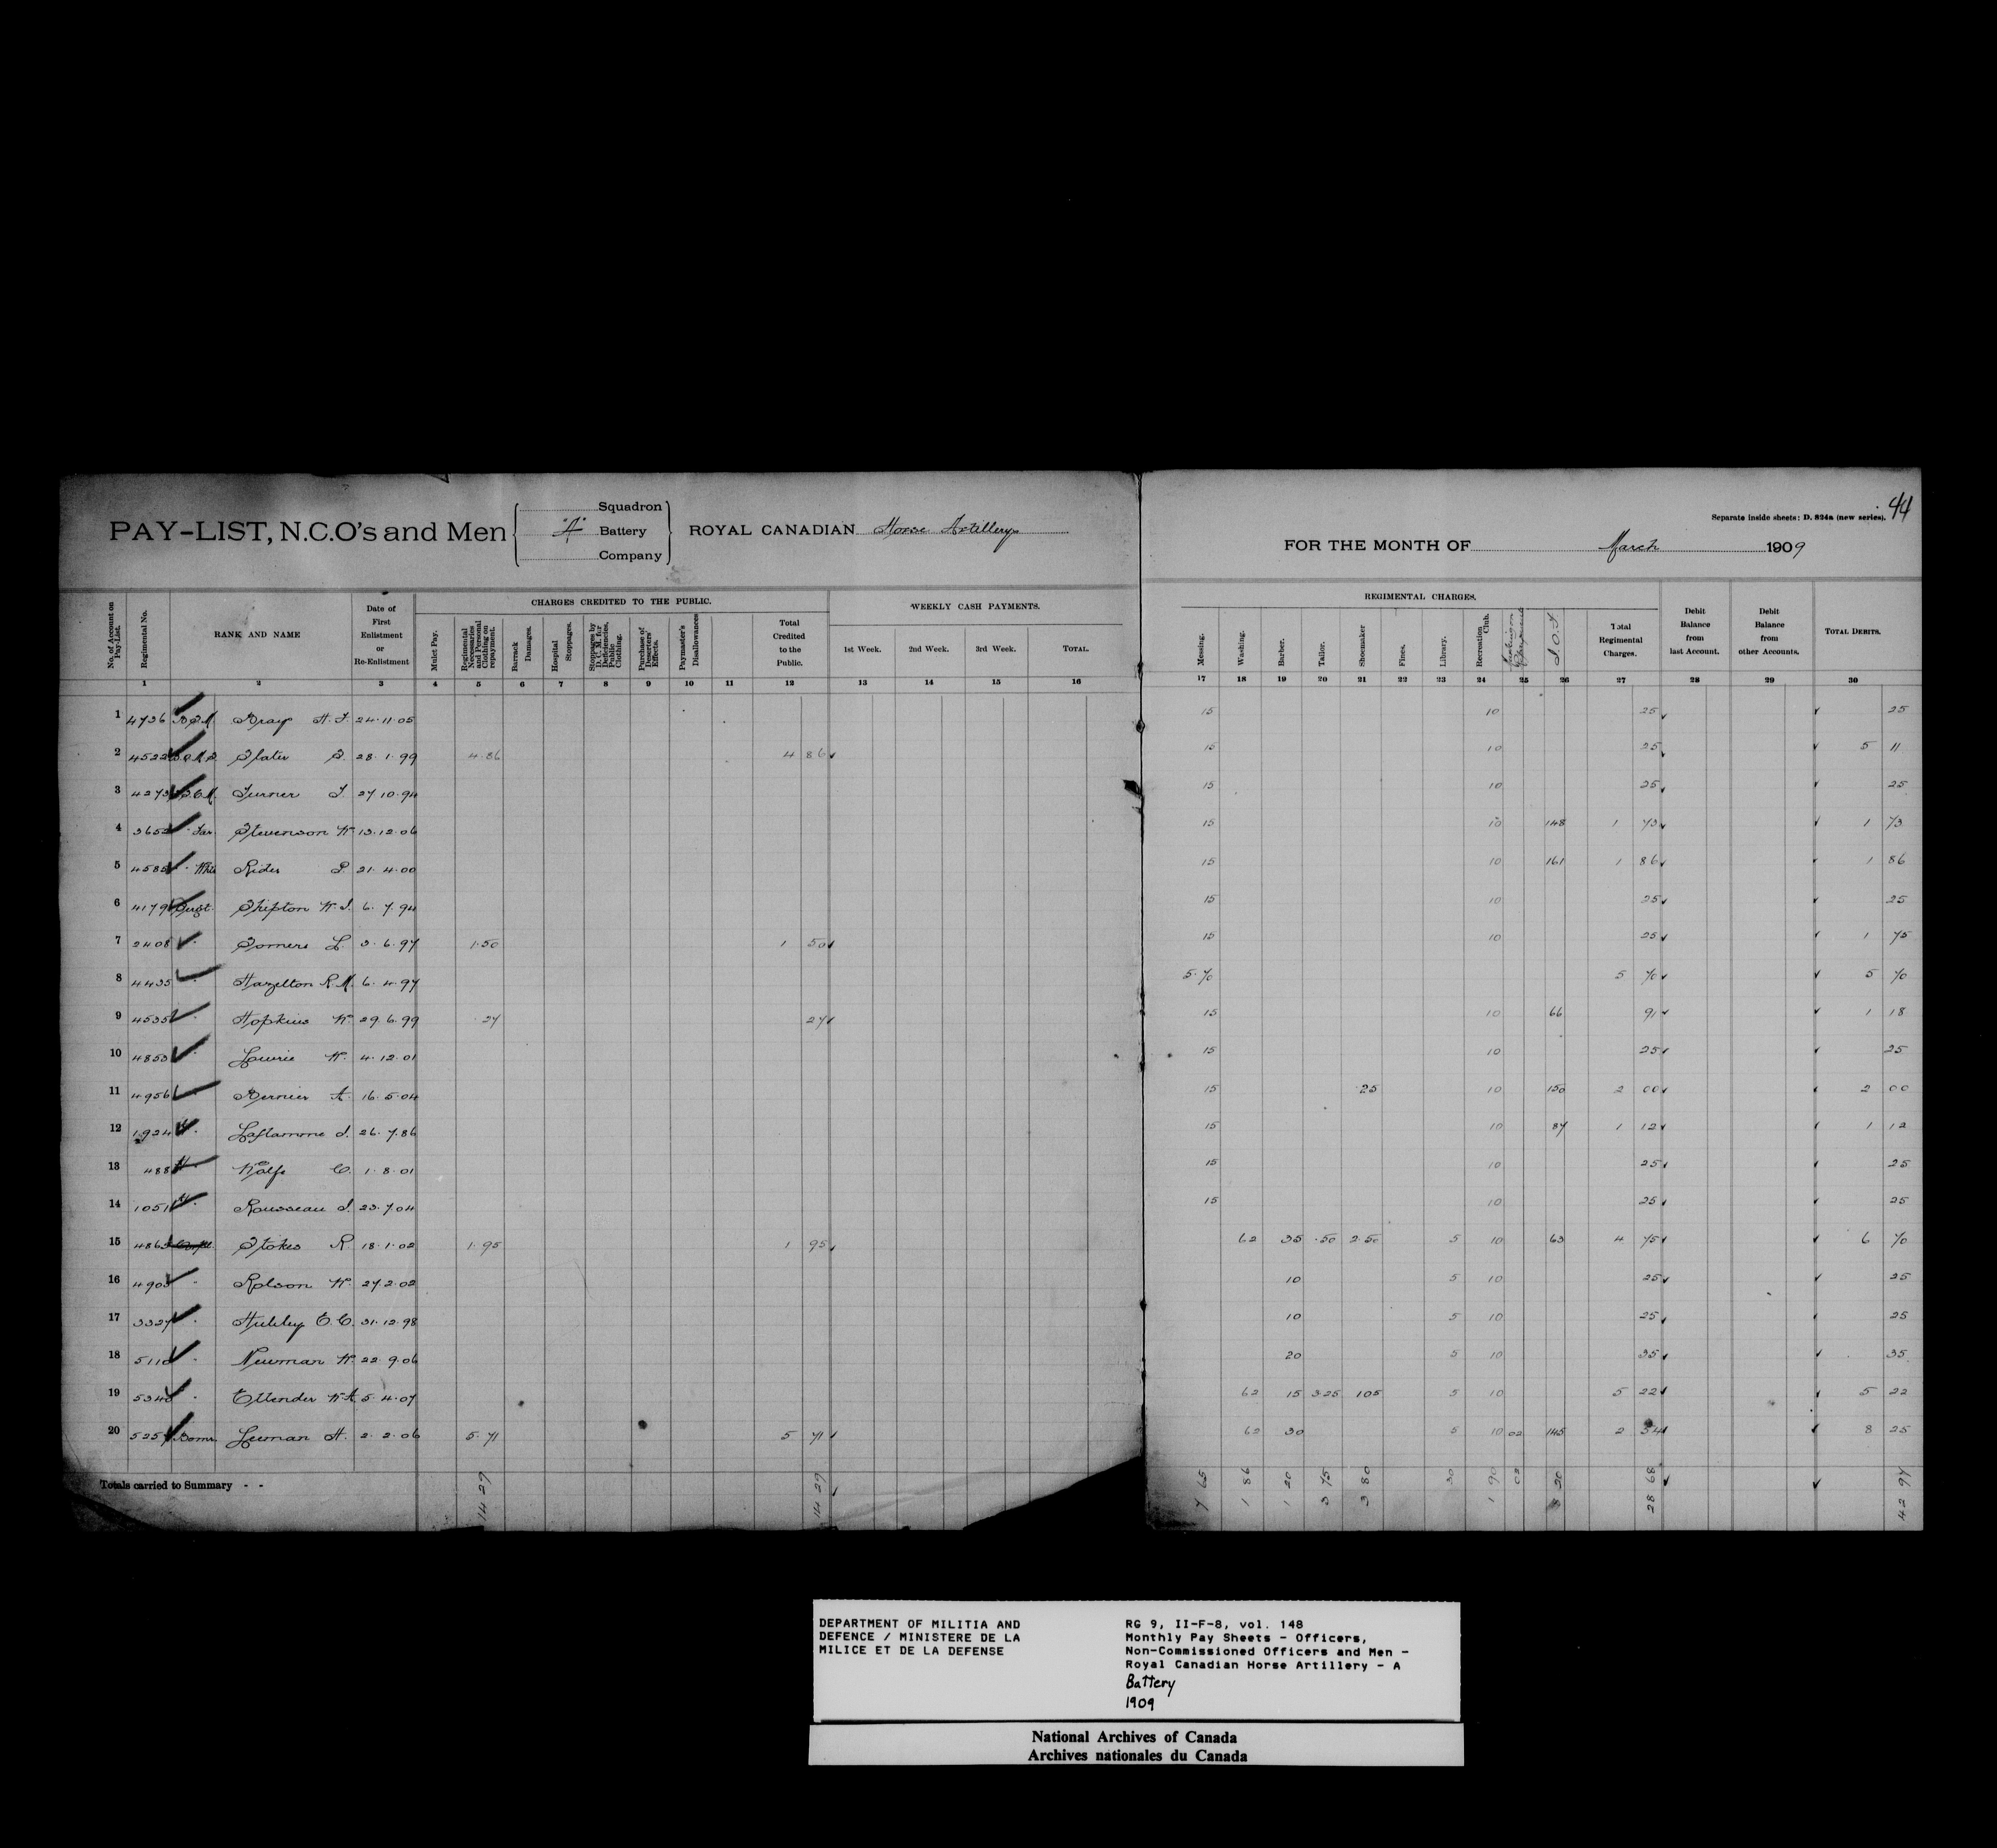 44
Separate inside sheets: D. 824a (new series).
PAY-LIST, N.C.O's and Men Squadron "A" Battery Company ROYAL CANADIAN Horse Artillery
FOR THE MONTH OF March 1909
CHARGES CREDITED TO THE PUBLIC. WEEKLY CASH PAYMENTS. REGIMENTAL CHARGES.
No. of Account on Pay-List. Regimental No. RANK AND NAME Date of First Enlistment or Re-Enlistment Mulct Pay. Regimental Necessaries and Personal Clothing on repayment. Barrack Damages. Hospital Stoppages. Stoppages by D. C. M. for Deficiencies, Public Clothing. Purchase of Deserters' Effects. Paymaster's Disallowances Total Credited to the Public. 1st Week. 2nd Week. 3rd Week. TOTAL. Messing. Washing. Barber. Tailor. Shoemaker Fines. Library. Recreation Club. Total Regimental Charges. Debit Balance from last Account. Debit Balance from other Accounts. TOTAL DEBITS.
1 2 3 4 5 6 7 8 9 10 11 12 13 14 15 16 17 18 19 20 21 22 23 24 25 26 27 28 29 30
1 4736 Bray 24.11.05 15 10 25 25
2 4522 Slater S. 28.1.99 4.86 4 86 15 10 25 5 11
3 4273 Turner 27 10.94 15 10 25 25
4 3652 Far. Stevenson W. 13.12.06 15 10 148 1 73 1 73
5 Rider 21.4.00 15 10 161 1 86 1 86
6 4179 Sergt. Shipton 6.7.94 15 10 25 25
7 2408 Somers L. 3.6.97 1.50 1 50 15 10 25 1 75
8 4435 Hazelton R.M. 6.4.97 5.70 5 70 5 70
9 4535 Hopkins W. 29.6.99 27 27 15 10 66 91 1 18
10 4853 Lowrie W. 4.12.01 15 10 25 25
11 4956 Bernier A. 16.5.04 15 25 10 150 2 00 2 00
12 1924 Laflamme J. 26.7.86 15 10 87 1 12 1 12
13 488 Wolfe C. 1.8.01 15 10 25 25
14 1051 Rousseau J. 23.7.04 15 10 25 25
15 4863 Corpl. Stokes R. 18.1.02 1.95 1 95 62 35 .50 2.50 5 10 63 4 75 6 70
16 4903 Rolson W. 27.2.02 10 5 10 25 25
17 3327 31.12.98 10 5 10 25 25
18 5110 Newman W. 22.9.06 20 5 10 35 35
19 Ellender W.A. 5.4.07 62 15 3.25 105 5 10 5 22 5 22
20 5257 Bomr. Leeman H. 2.2.06 5.71 5 71 62 30 5 10 02 145 2 54 8 25
Totals carried to Summary - - 14 29 14 29 7 65 1 86 1 20 3 75 3 80 30 1 90 02 8 20 28 68 42 97
DEPARTMENT OF MILITIA AND
DEFENCE / MINISTERE DE LA
MILICE ET DE LA DEFENSE
RG 9, II-F-8, vol. 148
Monthly Pay Sheets - Officers,
Non-Commissioned Officers and Men -
Royal Canadian Horse Artillery - A
Battery
1909
National Archives of Canada
Archives nationales du Canada